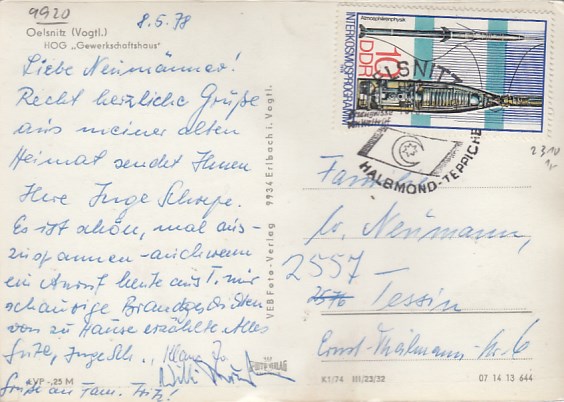 9920
8.5.78
Oelsnitz (Vogtl.)
HOG „Gewerkschaftshaus"
Liebe Neumänner!
Recht herzliche Grüße
aus meiner alten
Heimat sendet Ihnen
Ihre Inge
Es ist schön, mal aus-
zuspannen - auch wenn
ein Anruf heute aus T. mir
schaurige Brandgeschichten
von zu Hause erzählte. Alles
Gute, Inge Sch.,
Grüße an Fam. Fritz!
AVP -,25 M
VEB Foto-Verlag 9934 Erlbach i. Vogtl.
FOTO VERLAG
Atmosphärenphysik
INTERKOSMOSPROGRAMM
10
DDR
OELSNITZ
HALBMOND-TEPPICHE
2310
Familie
W. Neumann,
2557
2576 Tessin
Ernst-Thälmann-Str. 6
K1/74 III/23/32
07 14 13 644